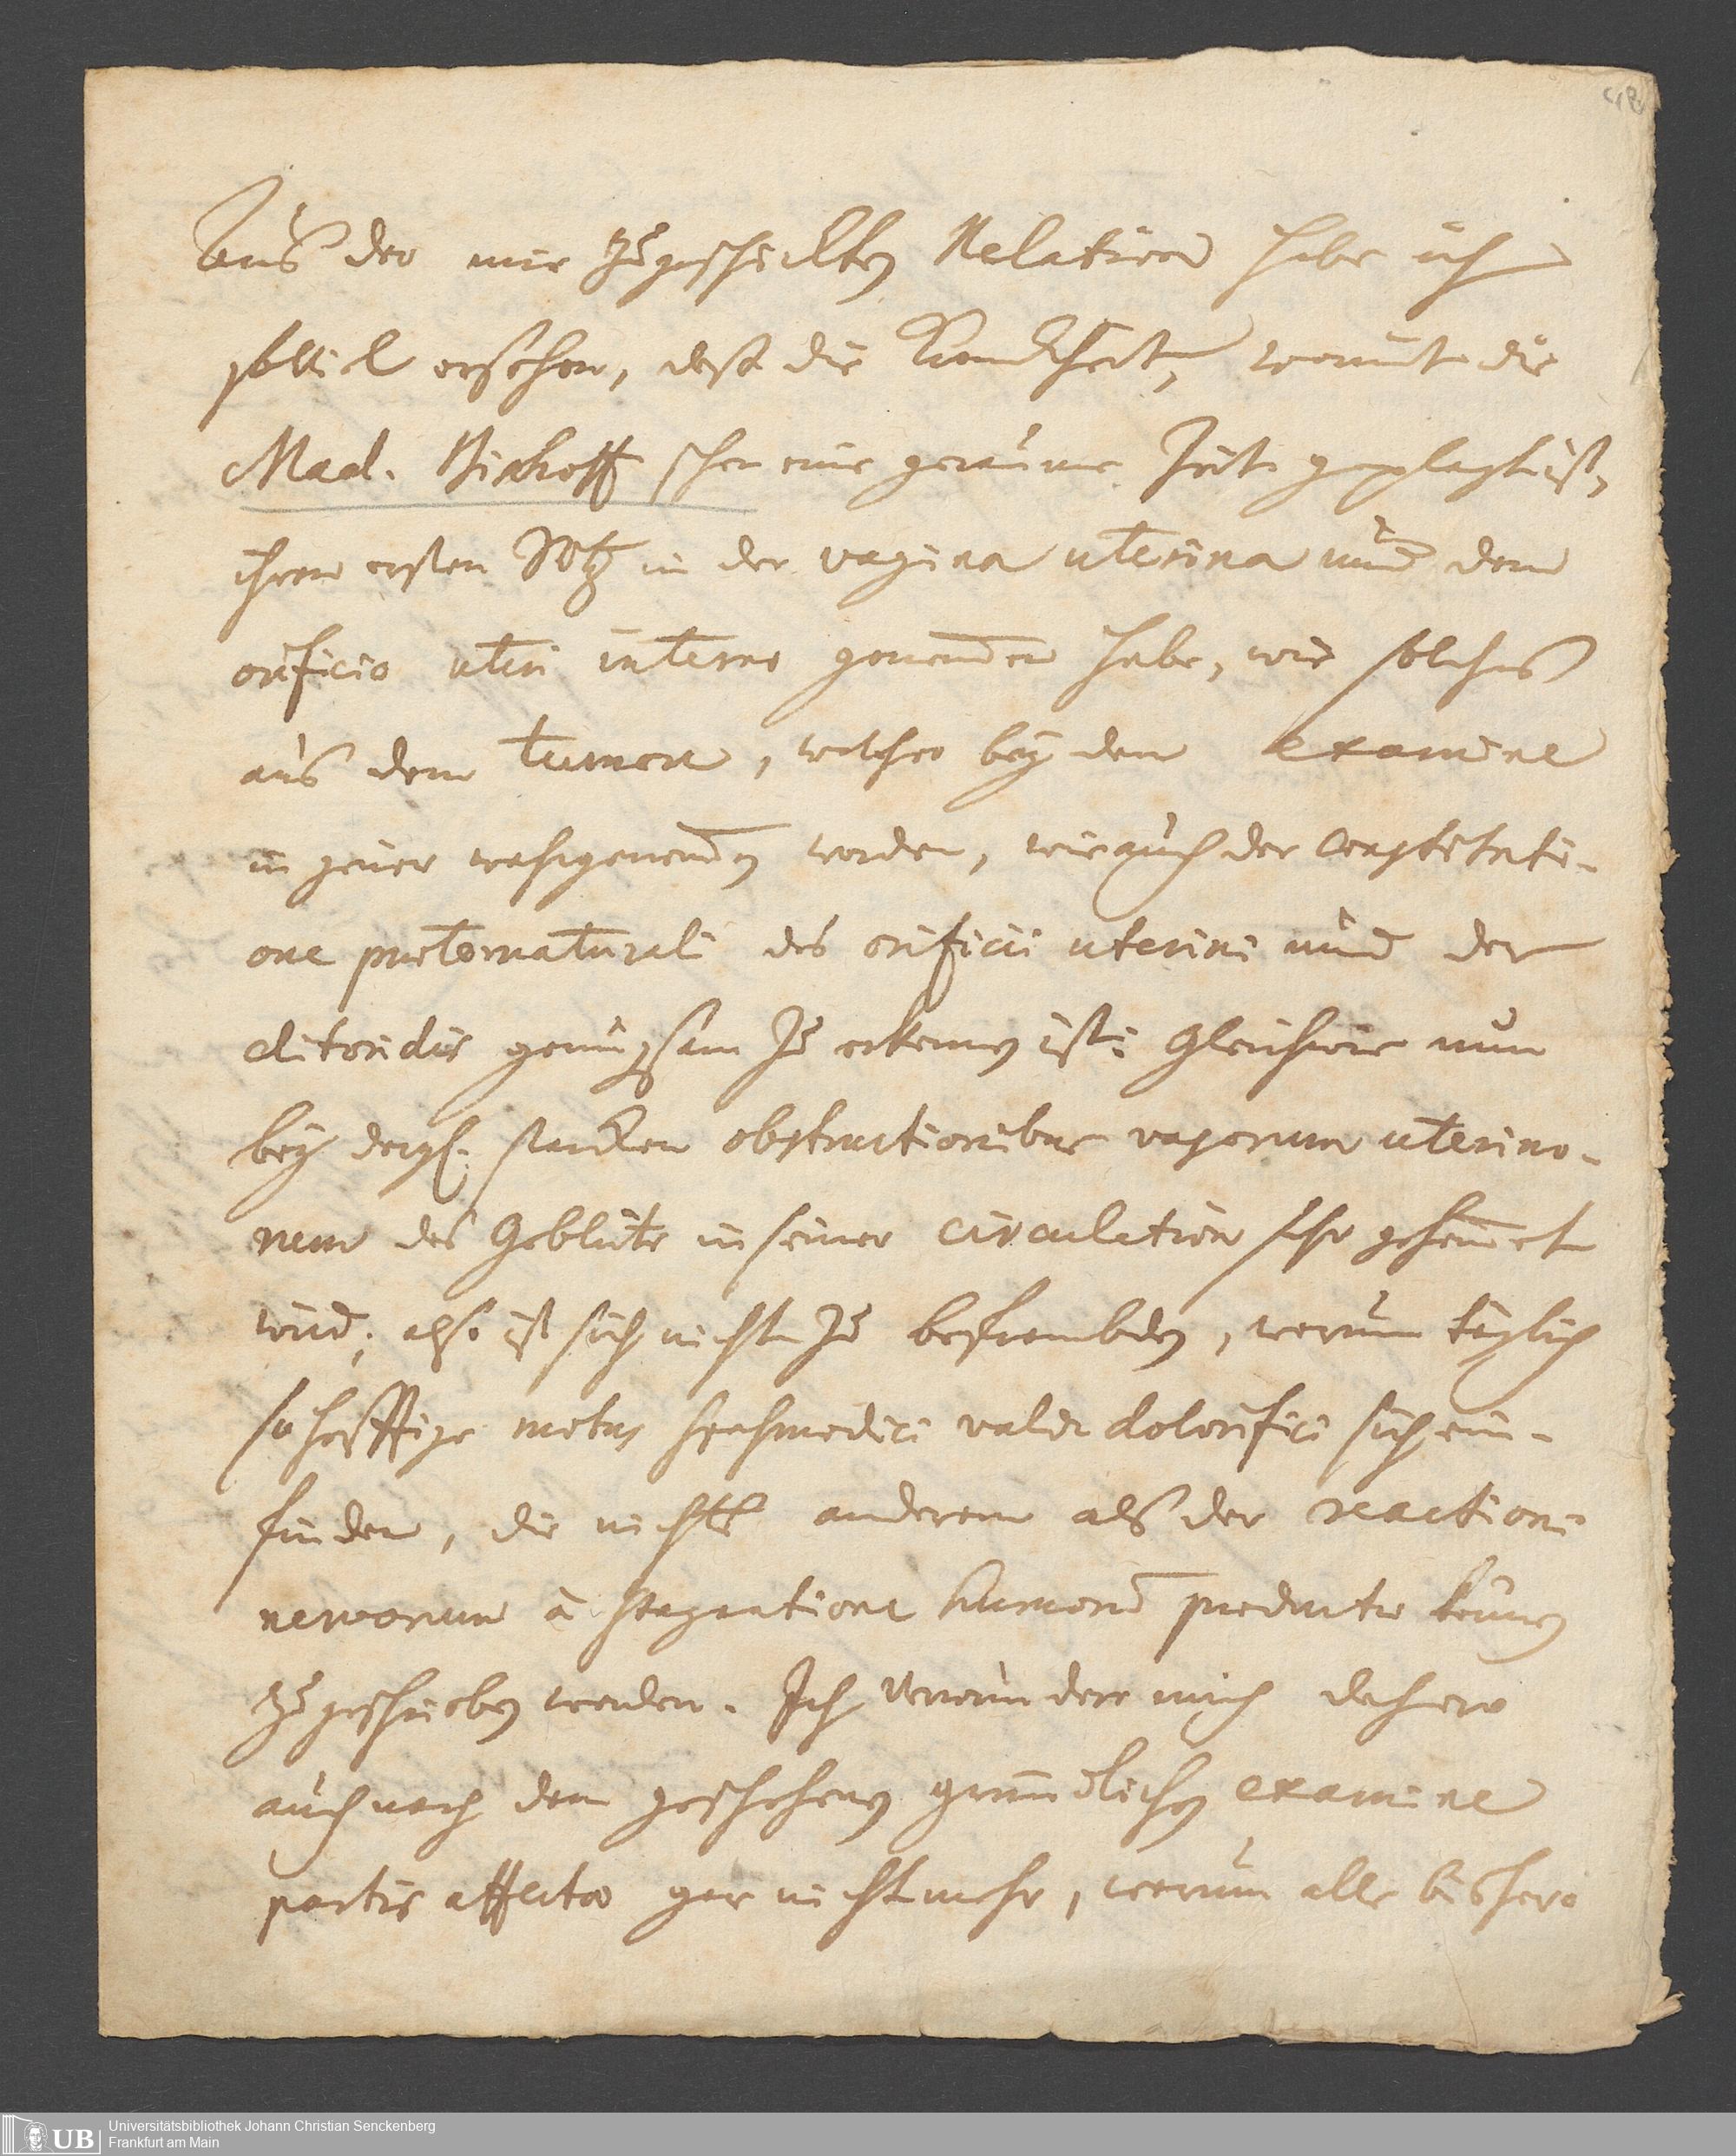 48
Aus der mir zugeschickten Relation habe ich
soviel ersehen, daß die Kranckheit, womit die
Mad. Bishoff schon eine geraume Zeit geplagt ist,
ihren ersten Sitz in der vagina uterina und dem
orificio uteri interno genommen habe, wie solches
aus dem tumore, welcher bey dem examine
in jener wahrgenommen worden, wie auch der
one praeternaturali des orificii uterini und der
clitoridis genugsam zu erkennen ist: Gleichwie nun
bey dergl. starcken obstructionibus vasorum uterino-
rum das Geblüte in seiner circulation sehr gehemmet
wird; also ist sich nicht zu befrembden, warum täglich
so hefftige motus spasmodici valde dolorifici sich ein-
finden, die nichts anderem als der reactioni
nervorum à stagnatione humorum productae können
zugeschrieben werden. Ich verwundere mich dahero
auch nach dem geschehenen gründlichen examine
partis affectae gar nicht mehr, warum alle bishero
Universitätsbibliothek Johann Christian Senckenberg
Frankfurt am Main
UB